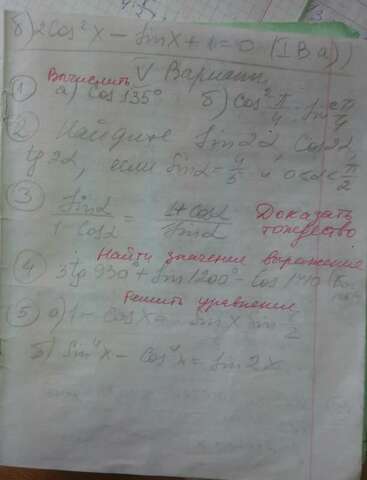 б) 2Cos²x − Sinx + 1 = 0 (I В а))
V Вариант
Вычислить
① а) Cos 135° б) Cos² π/4 − Sin² π/4
② Найдите Sin2α, Cos2α,
tg2α, если Sinα = 4/5 и 0<α<π/2
③ Sinα/1 Cosα = 1+Cosα/Sinα Доказать тождество
Найти значение выражения
④ 3tg 930° + Sin 1200° − Cos 1410°
Решить уравнения
⑤ а) 1 − Cosx = Sinx Sin x/2
б) Sin⁴x − Cos⁴x = Sin2x